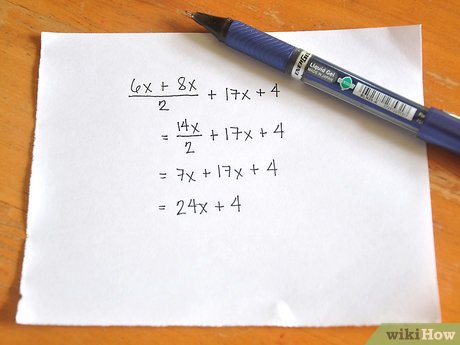 6x + 8x / 2 + 17x + 4
= 14x / 2 + 17x + 4
= 7x + 17x + 4
= 24x + 4
Liquid Gel
wikiHow